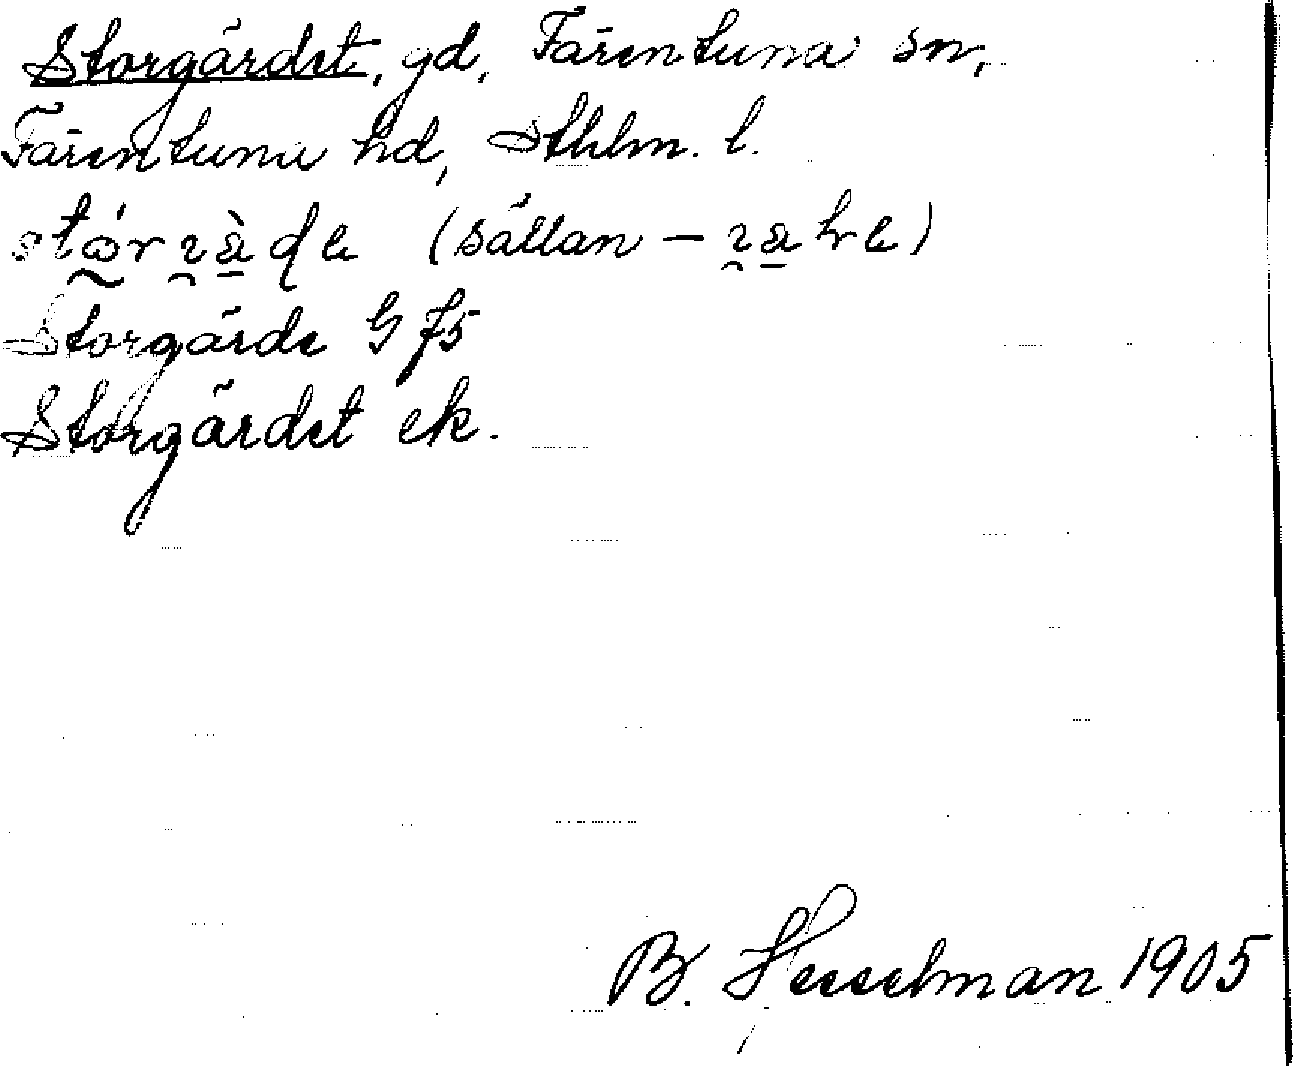 Storgärdet, gd, Färentuna sn,
Färentuna hd, Sthlm. l.
(sällan –
Storgärde G 75
Storgärdet ek.
B. Hesselman 1905